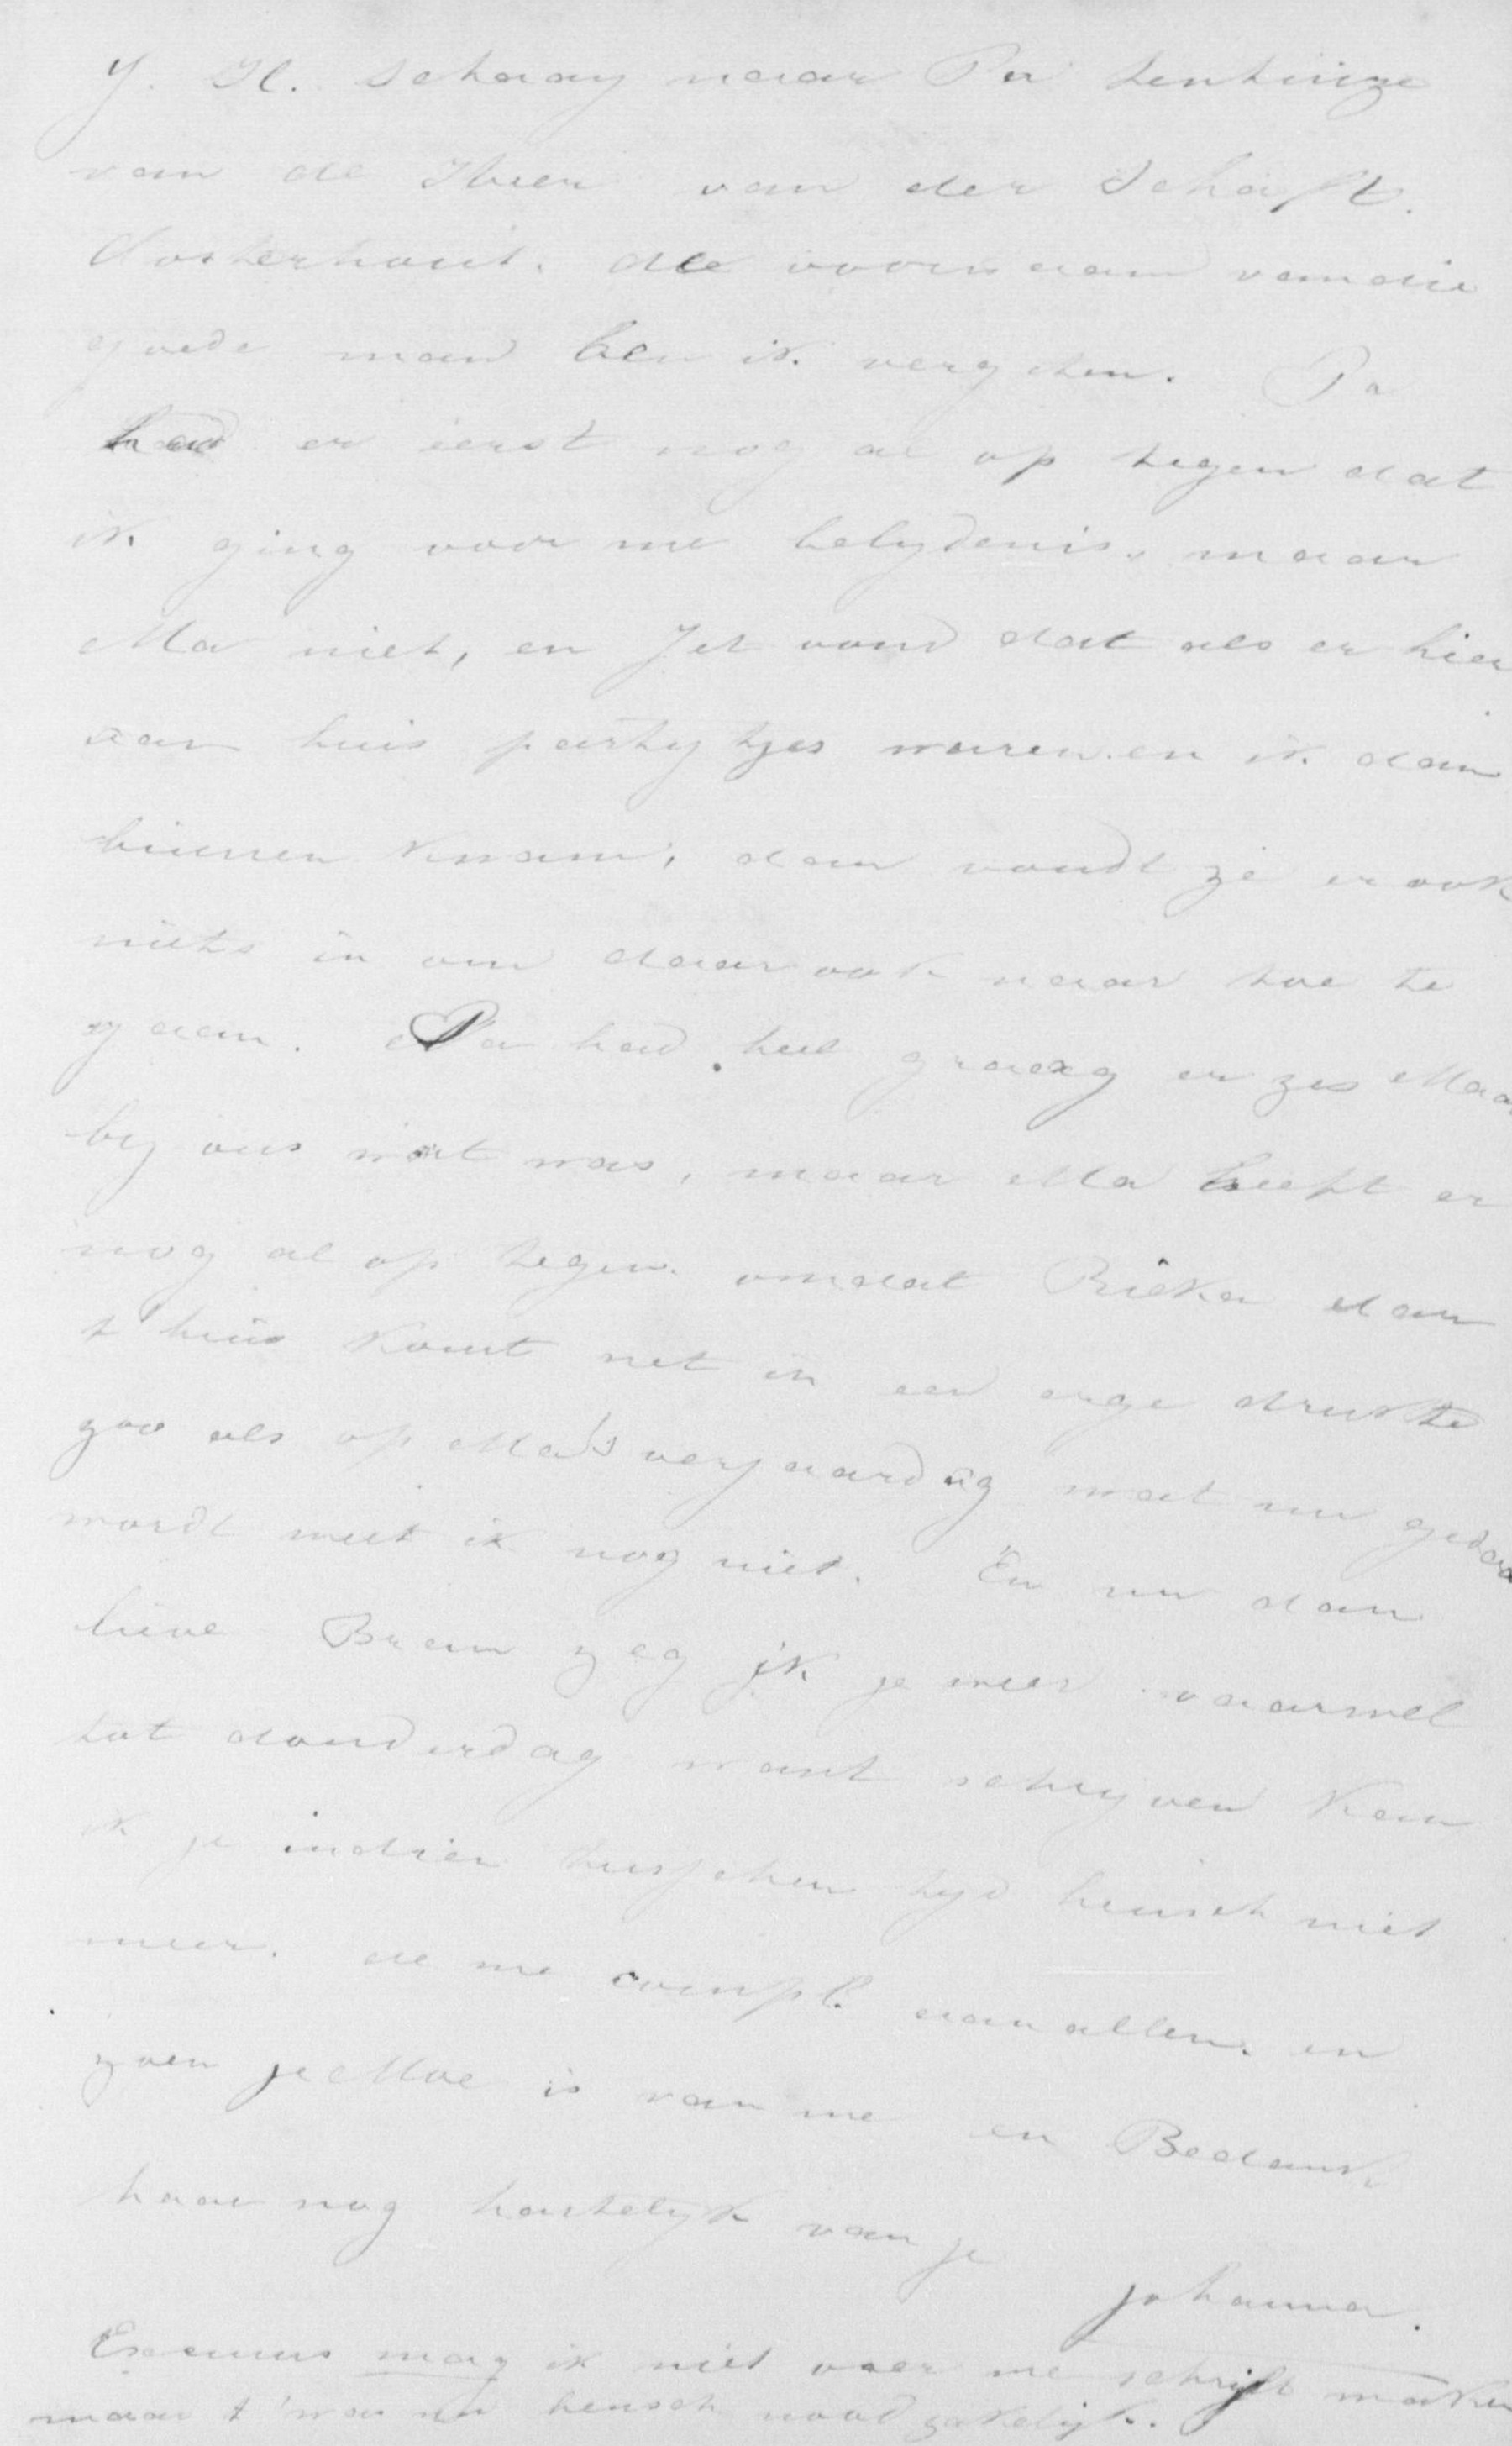 J. H. Schraay naar Pa tenhuize
van de Heer van der Schaft.
Oosterhout. de voornaam van die
goede man ben ik vergeten. Pa
had er eerst nog al op tegen dat
ik ging voor me belydenis, maar
Ma niet, en Jet vond dat als er hier
aan huis partytjes waren en ik dan
binnen kwam, dan vondt ze er ook
niets in om daar ook naar toe te
gaan. Pa had heel graag er zes Maa
by ons wat was, maar Ma heeft er
nog al op tegen omdat Rieka dan
t'huis komt net in een enge drukte
zoo als op Ma's verjaardag wat nu gedaa
wordt weet ik nog niet. En nu dan
lieve Bram zeg ik je weer vaarwel
tot donderdag want schryven kan
ik je indien tusschen tyd heusch niet
meer. de me compl. aan allen. en
zoen je Moe is van me en Bedank
haar nog hartelyk van je
Johanna.
Excuus mag ik niet voor me schrift maken
maar t'was nu heusch noodzakelyk.